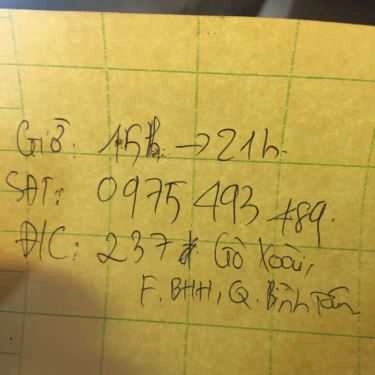 Giờ: 15h → 21h.
SĐT: 0975 493 489.
Đ/C: 237 Gò Xoài,
F. BHH, Q. Bình Tân